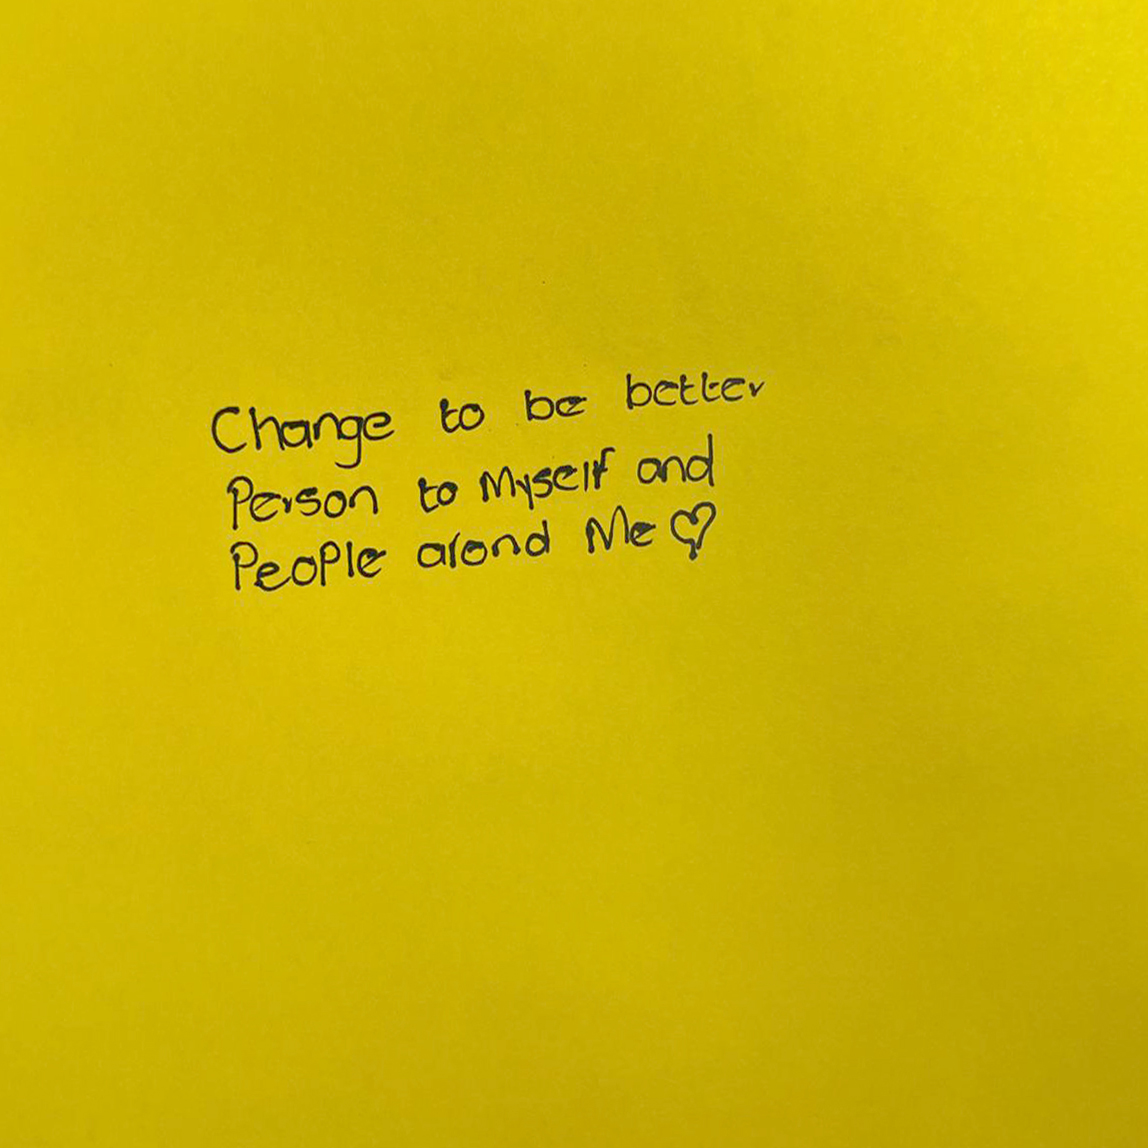 Change to be better
Person to Myself and
People arond Me ♡